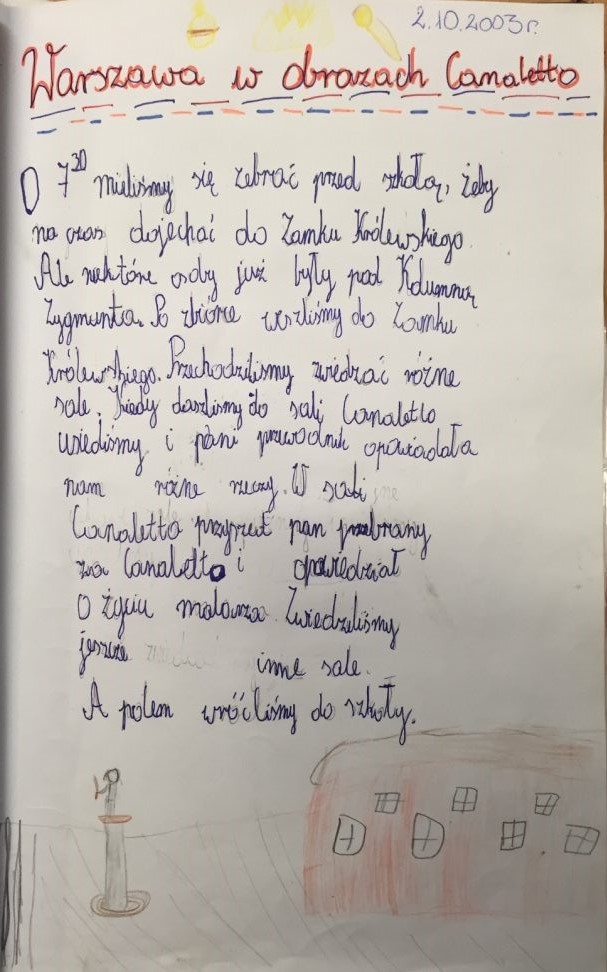 2.10.2003r.
Warszawa w obrazach Canaletto
O 7³⁰ mieliśmy się zebrać przed szkołą, żeby
na czas dojechać do Zamku Królewskiego.
Ale niektóre osoby już były pod Kolumną
Zygmunta. Po zbiórce weszliśmy do Zamku
Królewskiego. Przechodziliśmy zwiedzać różne
sale. Kiedy doszliśmy do sali Canaletto
usiedliśmy i pani przewodnik opowiadała
nam różne rzeczy. W sali
Canaletto przyszedł pan przebrany
za Canaletto i opowiedział
O życiu malarza. Zwiedzeliśmy
jeszcze inne sale.
A potem wróciliśmy do szkoły.